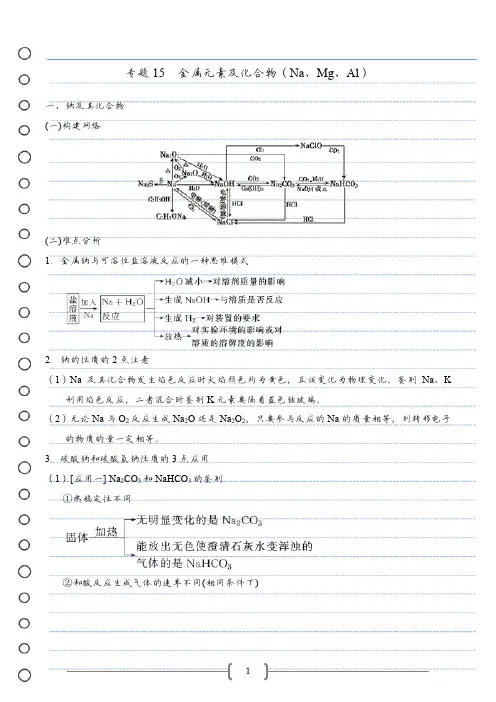 专题15 金属元素及化合物(Na、Mg、Al)
一、钠及其化合物
(一)构建网络
NaClO
Cl₂
CO₂
Na₂O₂
Na₂O
H₂O
O₂
CO₂
Na₂S
S
Na
H₂O
NaOH
CO₂
Ca(OH)₂
Na₂CO₃
CO₂、H₂O
NaOH或△
NaHCO₃
C₂H₅OH
C₂H₅ONa
HCl
HCl
HCl
NaCl
(二)难点分析
1. 金属钠与可溶性盐溶液反应的一种思维模式
盐溶液 加入 Na
Na+H₂O反应
H₂O减小→对溶剂质量的影响
生成NaOH→与溶质是否反应
生成H₂→对装置的要求
放热→对实验环境的影响或对
溶质的溶解度的影响
2. 钠的性质的2点注意
(1)Na及其化合物发生焰色反应时火焰颜色均为黄色,且该变化为物理变化。鉴别 Na、K
利用焰色反应,二者混合时鉴别K元素要隔着蓝色钴玻璃。
(2)无论Na与O₂反应生成Na₂O还是Na₂O₂,只要参与反应的Na的质量相等,则转移电子
的物质的量一定相等。
3. 碳酸钠和碳酸氢钠性质的3点应用
(1)[应用一] Na₂CO₃和NaHCO₃的鉴别
①热稳定性不同
固体 加热
无明显变化的是Na₂CO₃
能放出无色使澄清石灰水变浑浊的
气体的是NaHCO₃
②和酸反应生成气体的速率不同(相同条件下)
1